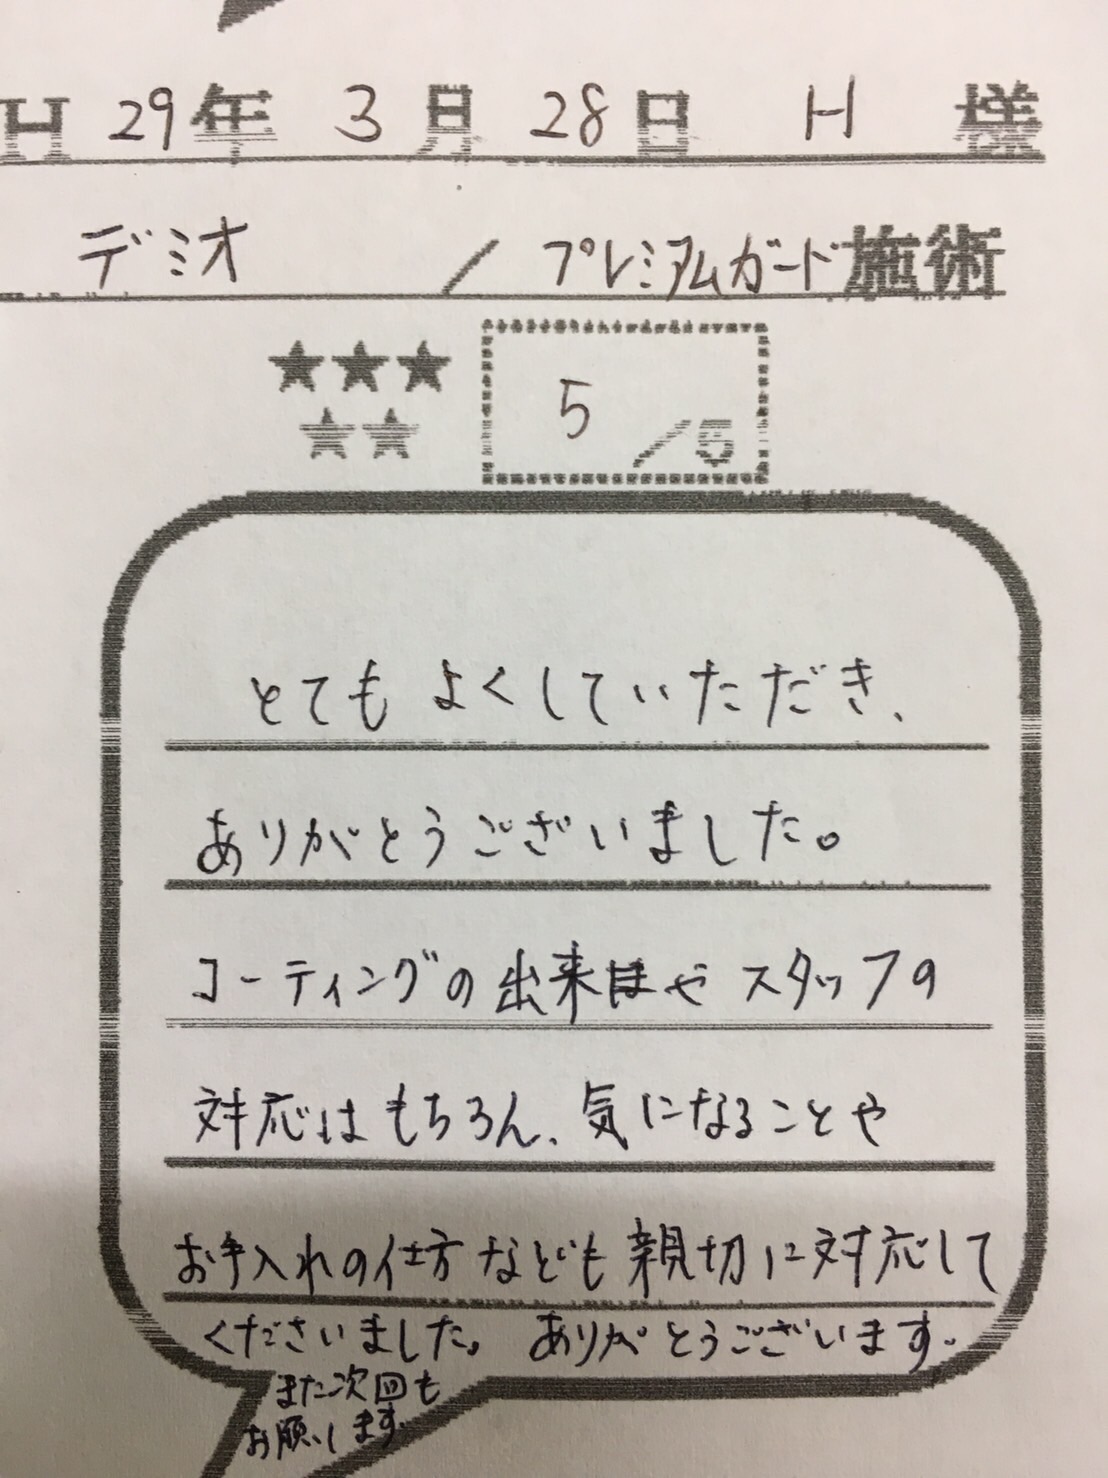 H 29年 3月 28日 H 様
デミオ / プレミアムガード施術
★★★
★★
5/5
とても よくしていただき、
ありがとうございました。
コーティングの出来ほや スタッフの
対応はもちろん、気になることや
お手入れの仕方なども親切に対応して
くださいました。 ありがとうございます。
また次回も
お願いします。